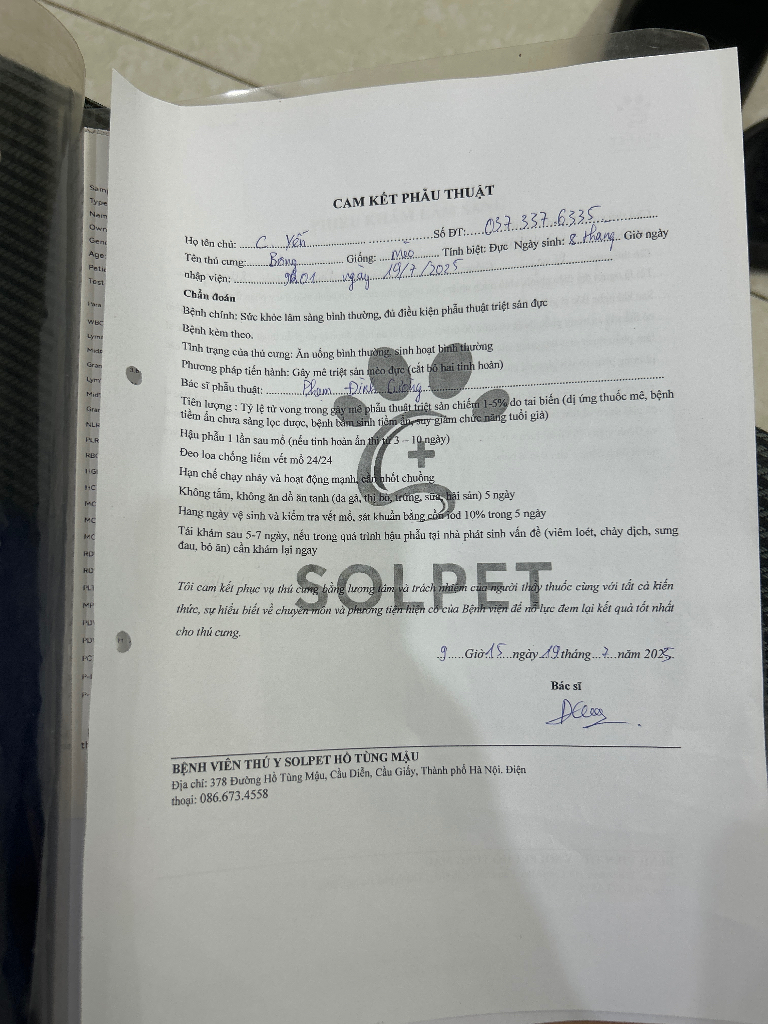 CAM KẾT PHẪU THUẬT
Họ tên chủ: C. Yến Số ĐT: 037.337.6335
Tên thú cưng: Bông Giống: Mèo Tính biệt: Đực Ngày sinh: 8 tháng Giờ ngày
nhập viện: ngày 19/7/2025
Chẩn đoán
Bệnh chính: Sức khỏe lâm sàng bình thường, đủ điều kiện phẫu thuật triệt sản đực
Bệnh kèm theo.
Tình trạng của thú cưng: Ăn uống bình thường, sinh hoạt bình thường
Phương pháp tiến hành: Gây mê triệt sản mèo đực (cắt bỏ hai tinh hoàn)
Bác sĩ phẫu thuật: Phạm Đình Cương
Tiên lượng : Tỷ lệ tử vong trong gây mê phẫu thuật triệt sản chiếm 1-5% do tai biến (dị ứng thuốc mê, bệnh
tiềm ẩn chưa sàng lọc được, bệnh bẩm sinh tiềm ẩn, suy giảm chức năng tuổi già)
Hậu phẫu 1 lần sau mổ (nếu tinh hoàn ẩn thì từ 3 – 10 ngày)
Đeo loa chống liếm vết mổ 24/24
Hạn chế chạy nhảy và hoạt động mạnh, cần nhốt chuồng
Không tắm, không ăn đồ ăn tanh (da gà, thị bò, trứng, sữa, hải sản) 5 ngày
Hang ngày vệ sinh và kiểm tra vết mổ, sát khuẩn bằng cồn iod 10% trong 5 ngày
Tái khám sau 5-7 ngày, nếu trong quá trình hậu phẫu tại nhà phát sinh vấn đề (viêm loét, chảy dịch, sưng
đau, bỏ ăn) cần khám lại ngay
SOLPET
Tôi cam kết phục vụ thú cưng bằng lương tâm và trách nhiệm của người thầy thuốc cùng với tất cả kiến
thức, sự hiểu biết về chuyên môn và phương tiện hiện có của Bệnh viện để nỗ lực đem lại kết quả tốt nhất
cho thú cưng.
9 Giờ 15 ngày 19 tháng 7 năm 2025
Bác sĩ
BỆNH VIỆN THÚ Y SOLPET HỒ TÙNG MẬU
Địa chỉ: 378 Đường Hồ Tùng Mậu, Cầu Diễn, Cầu Giấy, Thành phố Hà Nội. Điện
thoại: 086.673.4558